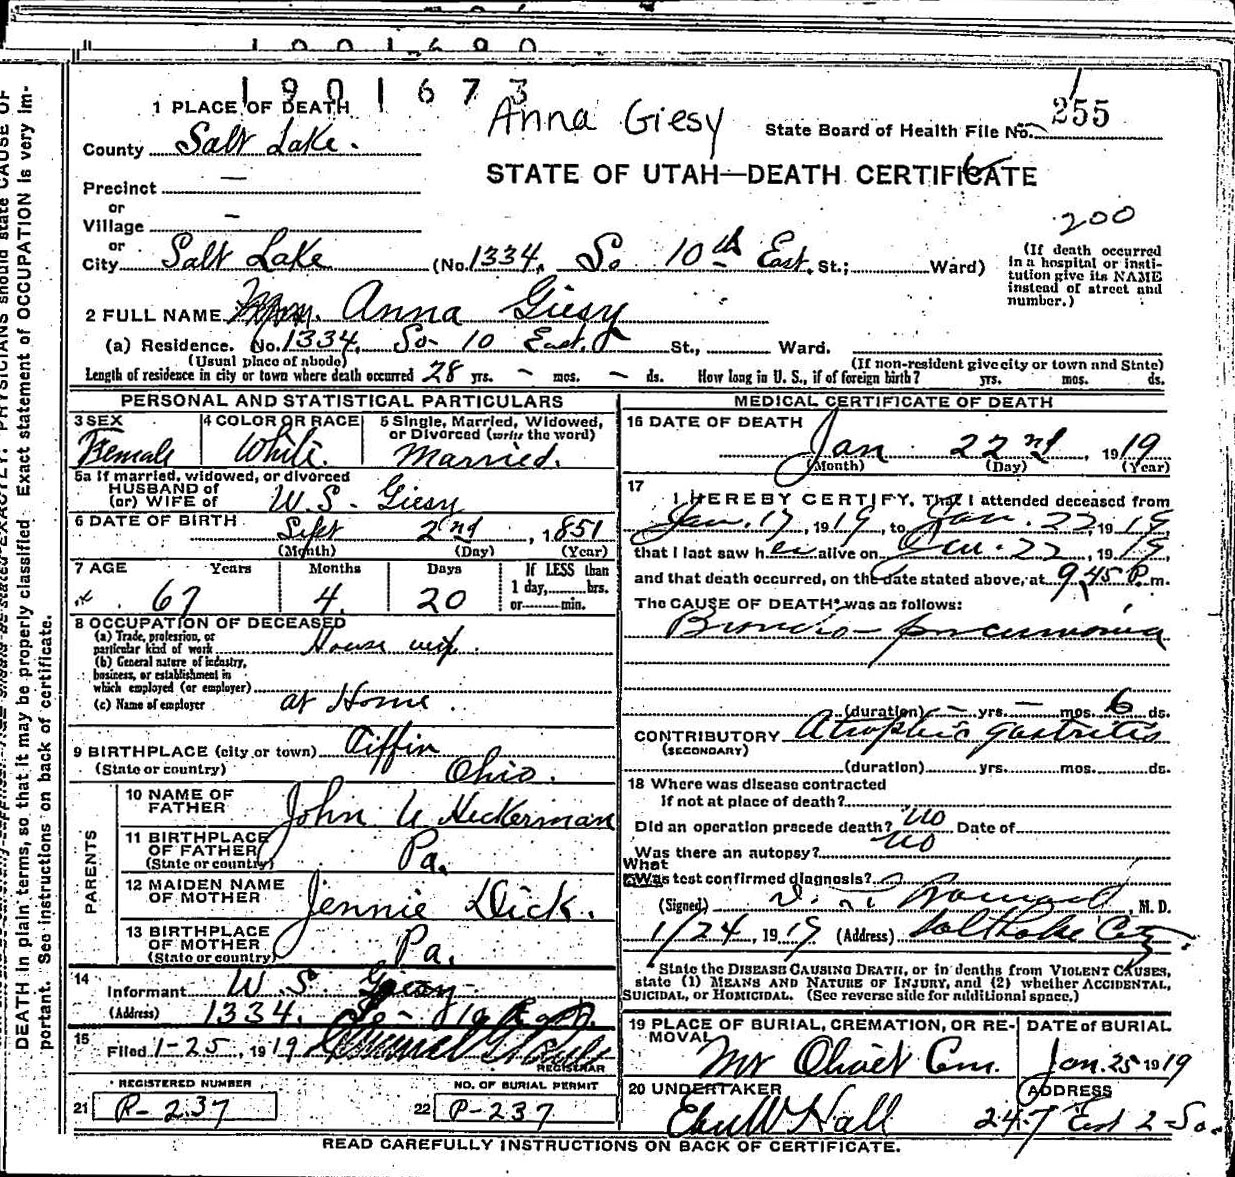 1901690
1901673
Anna Giesy
State Board of Health File No. 255
1 PLACE OF DEATH
County Salt Lake.
STATE OF UTAH—DEATH CERTIFICATE
Precinct —
or
Village —
200
or
City Salt Lake (No. 1334. So 10th East. St.; Ward)
(If death occurred in a hospital or institution give its NAME instead of street and number.)
2 FULL NAME Anna Giesy
(a) Residence. No. 1334. So- 10 East. St., Ward.
(Usual place of abode) (If non-resident give city or town and State)
Length of residence in city or town where death occurred 28 yrs. - mos. - ds. How long in U. S., if of foreign birth? yrs. mos. ds.
PERSONAL AND STATISTICAL PARTICULARS
3 SEX Female
4 COLOR OR RACE White.
5 Single, Married, Widowed, or Divorced (write the word) Married.
5a If married, widowed, or divorced
HUSBAND of
(or) WIFE of W. S. Giesy
6 DATE OF BIRTH Sept 2nd, 1851
(Month) (Day) (Year)
7 AGE Years Months Days If LESS than
1 day, hrs.
or min.
67 4. 20
8 OCCUPATION OF DECEASED
(a) Trade, profession, or
particular kind of work House wife.
(b) General nature of industry,
business, or establishment in
which employed (or employer)
(c) Name of employer at Home.
9 BIRTHPLACE (city or town) Tiffin
(State or country) Ohio.
PARENTS
10 NAME OF
FATHER John U Heckerman
11 BIRTHPLACE
OF FATHER Pa.
(State or country)
12 MAIDEN NAME
OF MOTHER Jennie Dick.
13 BIRTHPLACE
OF MOTHER Pa.
(State or country)
14
Informant W. S. Giesy
(Address) 1334. So- 10 East.
15
Filed 1-25, 1919
REGISTRAR
REGISTERED NUMBER
21 R-237
NO. OF BURIAL PERMIT
22 P-237
MEDICAL CERTIFICATE OF DEATH
16 DATE OF DEATH
Jan 22nd, 1919
(Month) (Day) (Year)
17
I HEREBY CERTIFY, That I attended deceased from
Jan. 17, 1919, to Jan. 22, 1919,
that I last saw her alive on Jan. 22, 1919,
and that death occurred, on the date stated above, at 9 45 P.m.
The CAUSE OF DEATH* was as follows:
Broncho-pneumonia
(duration) — yrs. — mos. 6 ds.
CONTRIBUTORY Atrophic gastritis
(SECONDARY)
(duration) yrs. mos. ds.
18 Where was disease contracted
If not at place of death?
Did an operation precede death? no Date of
Was there an autopsy? no
What
test confirmed diagnosis?
(Signed) , M. D.
1/24, 1919 (Address) Salt Lake City.
*State the DISEASE CAUSING DEATH, or in deaths from VIOLENT CAUSES,
state (1) MEANS AND NATURE OF INJURY, and (2) whether ACCIDENTAL,
SUICIDAL, or HOMICIDAL. (See reverse side for additional space.)
19 PLACE OF BURIAL, CREMATION, OR RE-
MOVAL
Mt Olivet Cem.
DATE of BURIAL
Jan. 25 1919
20 UNDERTAKER
Eber W Hall
ADDRESS
247 East 2-So.
READ CAREFULLY INSTRUCTIONS ON BACK OF CERTIFICATE.
DEATH in plain terms, so that it may be properly classified. Exact statement of OCCUPATION is very im-
portant. See instructions on back of certificate.